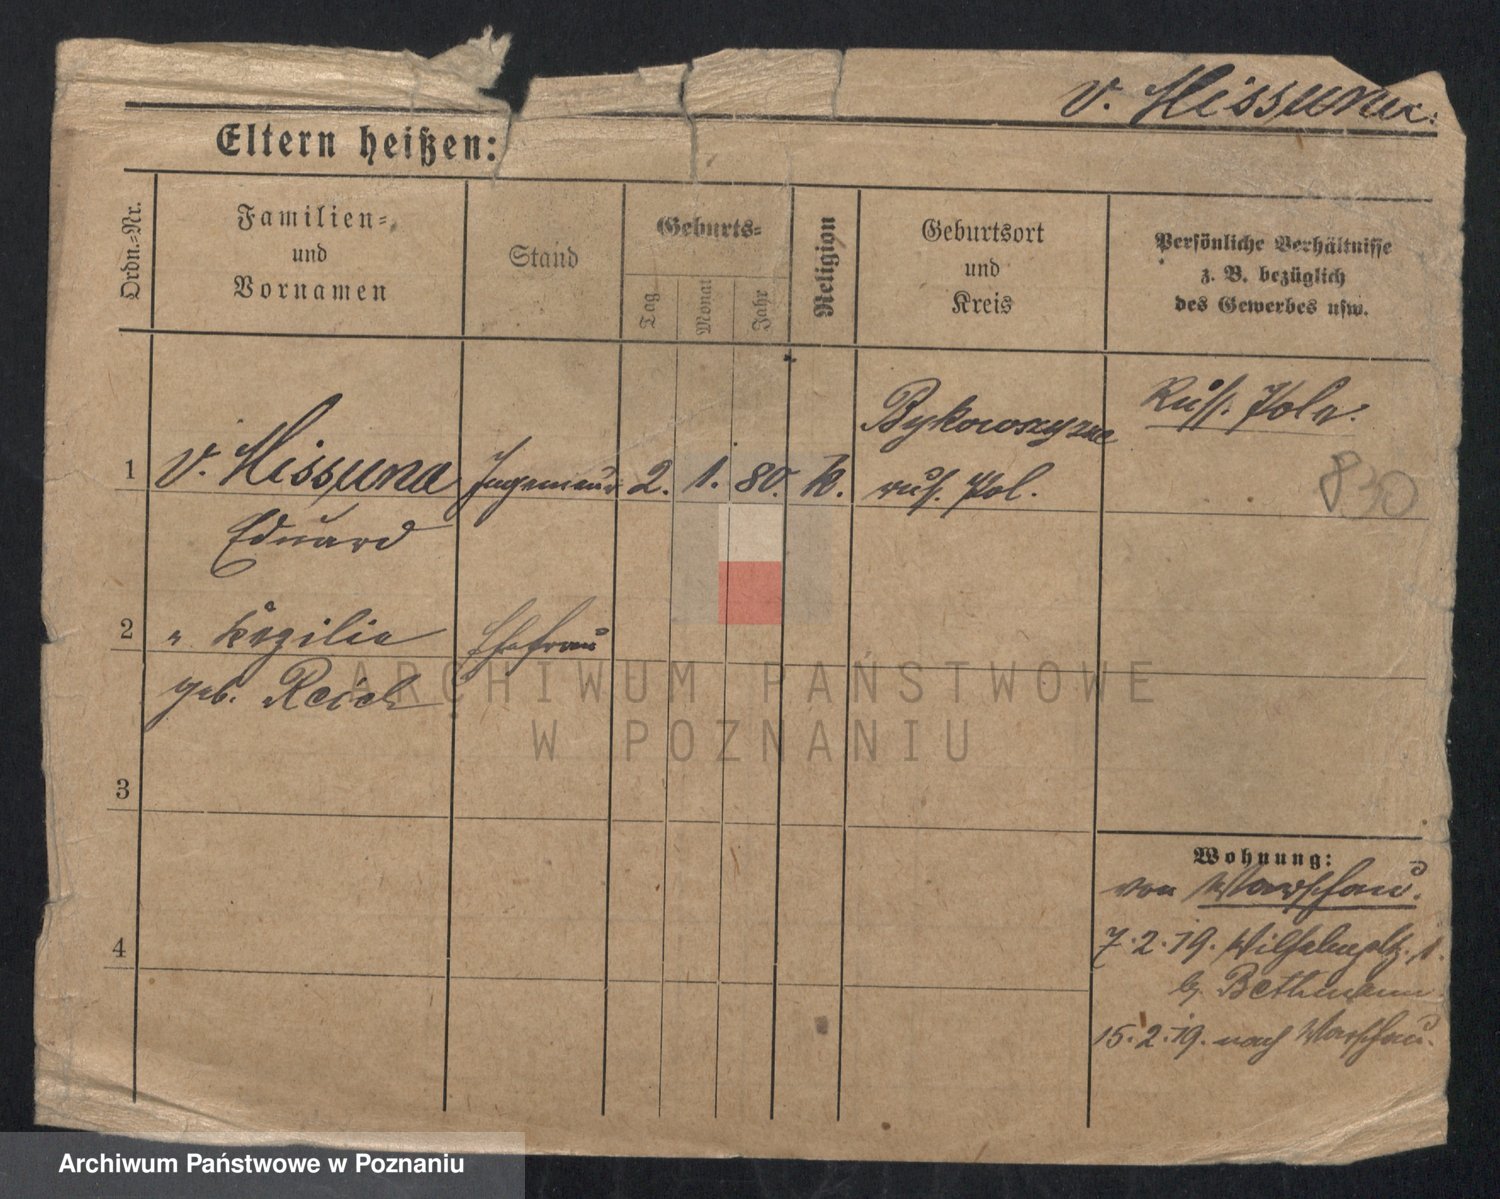 v. Hissuna
Eltern heißen:
Ordn.-Nr.
Familien-
und
Vornamen
Stand
Geburts-
Tag
Monat
Jahr
Religion
Geburtsort
und
Kreis
Persönliche Verhältnisse
z. B. bezüglich
des Gewerbes usw.
1
v. Hissuna
Eduard
Ingenieur
2. 1. 80. k.
Bykowszyzna
rus. Pol.
Russ. Pole.
830
2
" Cezilie
geb. Reich
Ehefrau
3
4
Wohnung:
von Warschau.
7.2.19. Wilhelmpltz. 1.
b/ Bethmann
15.2.19. nach Warschau.
ARCHIWUM PAŃSTWOWE
W POZNANIU
Archiwum Państwowe w Poznaniu